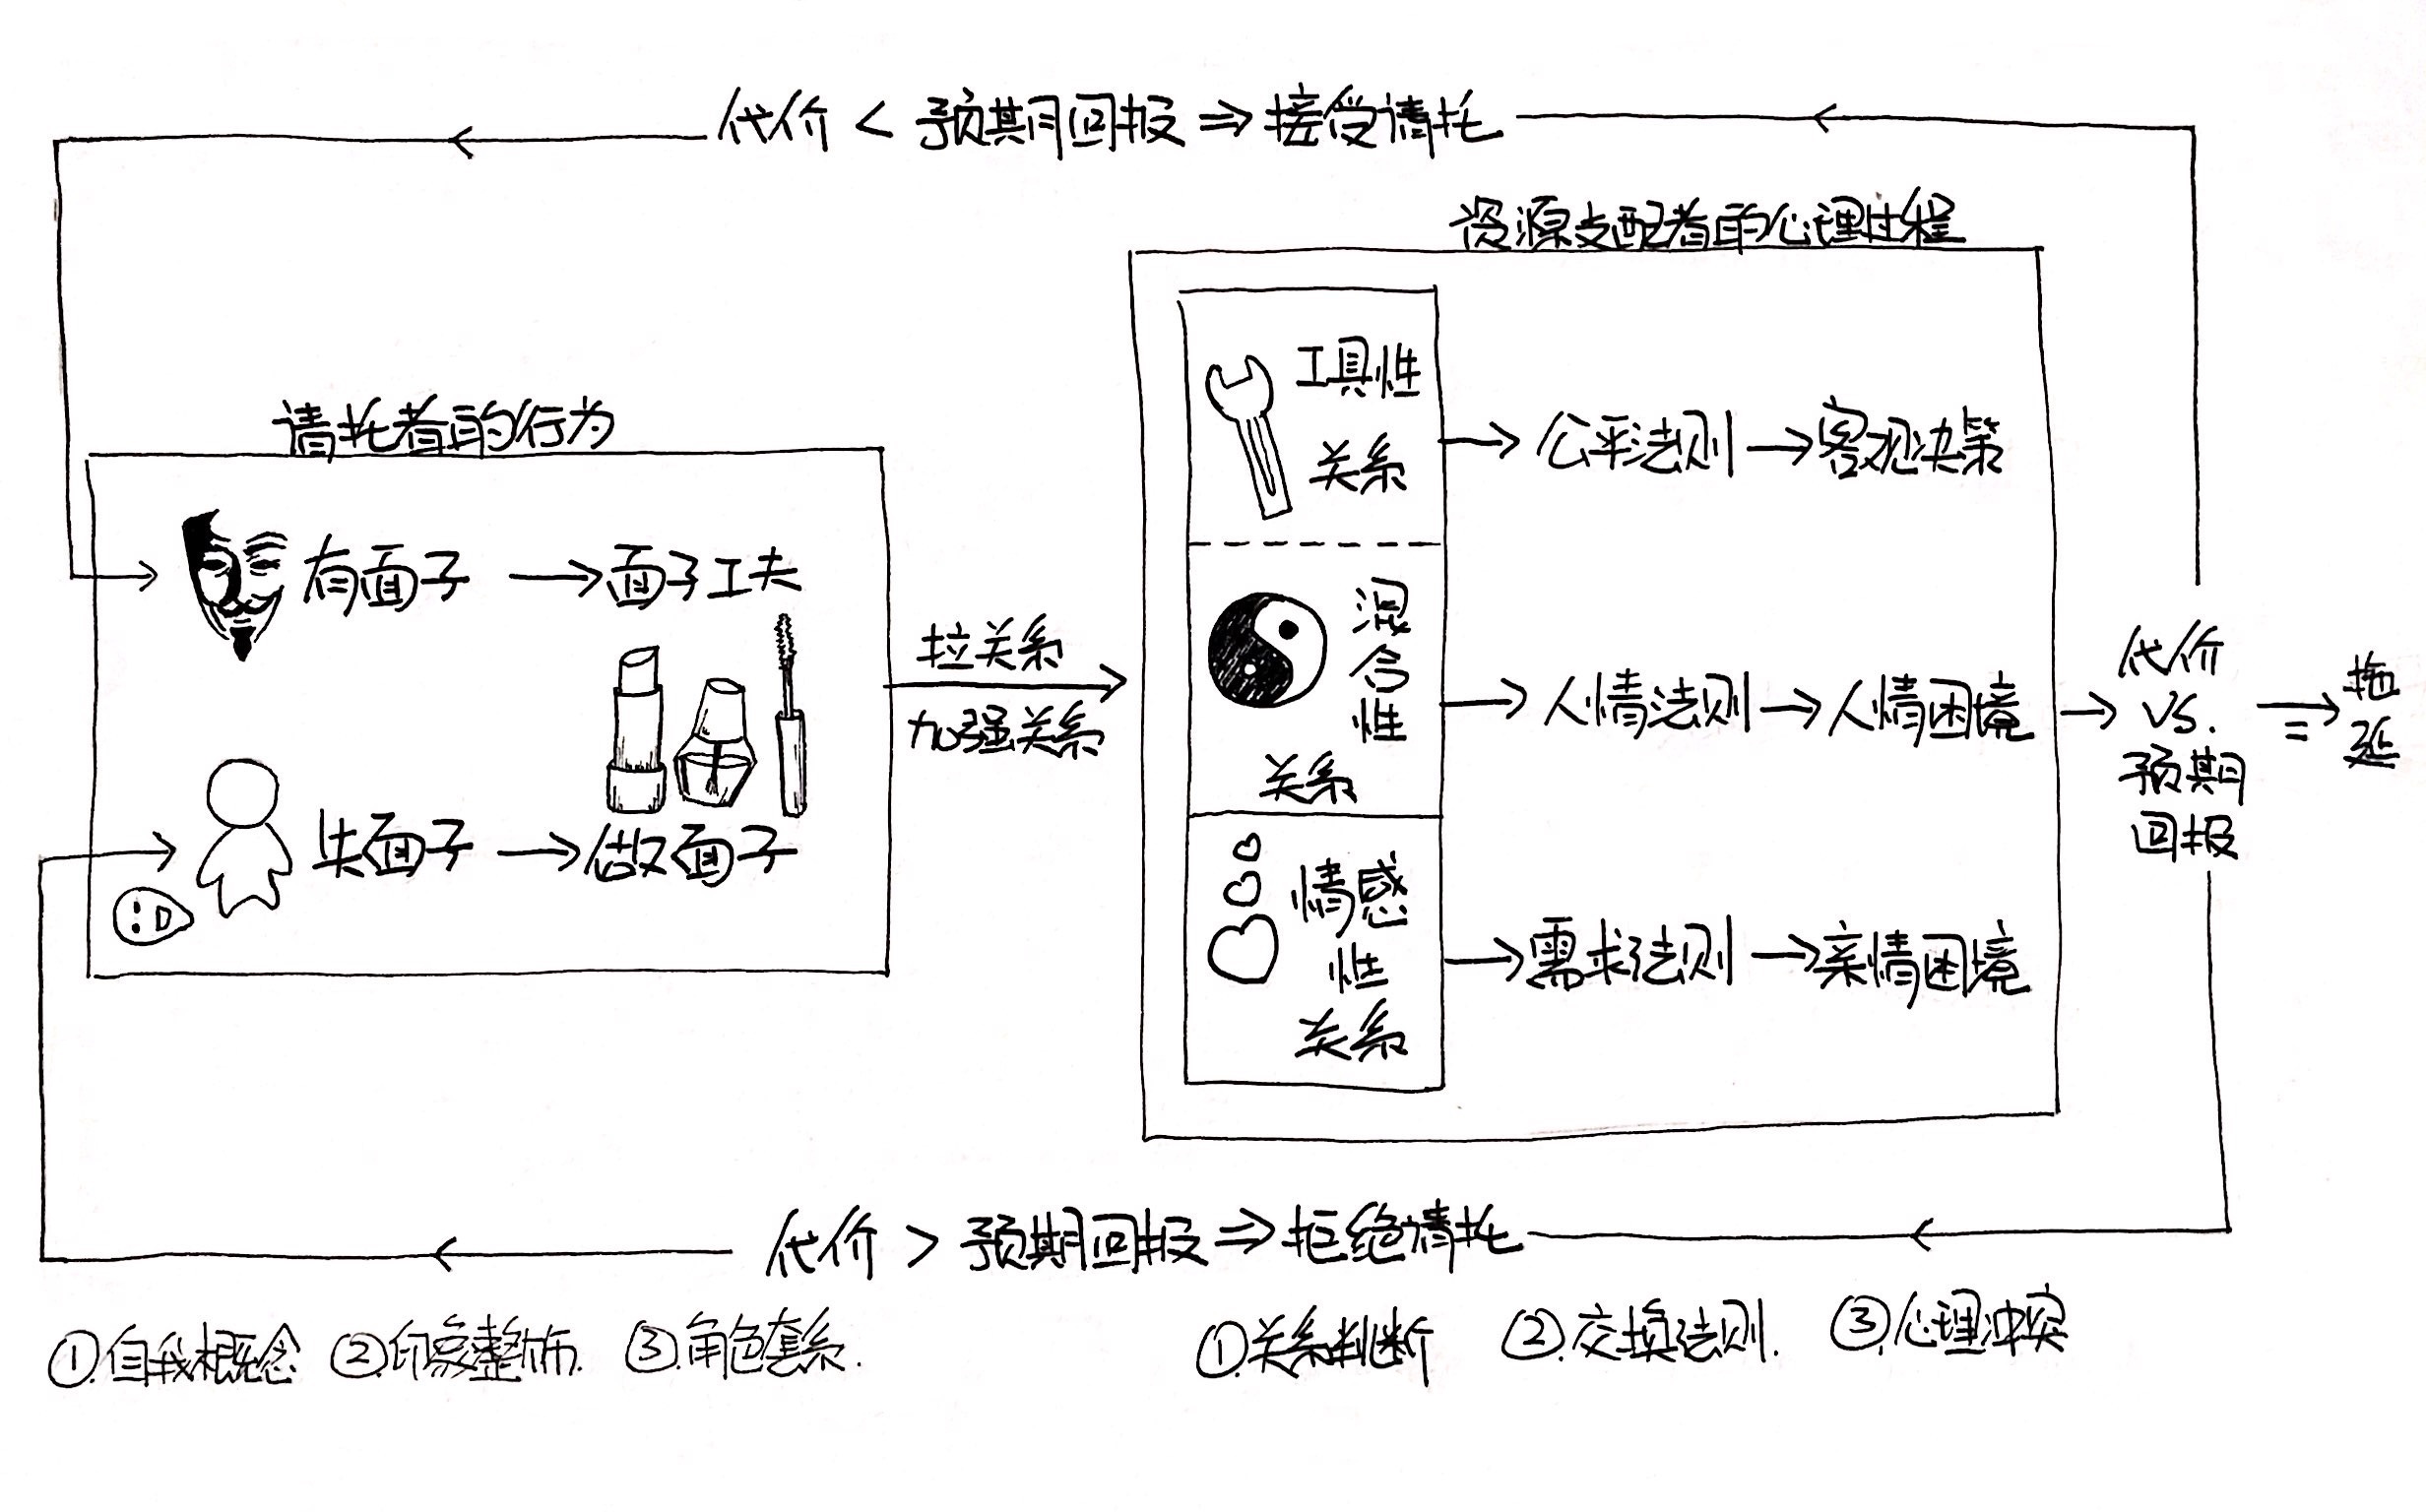 代价 < 预期回报 ⇒ 接受请托
资源支配者的心理过程
请托者的行为
有面子 → 面子工夫
失面子 → 做面子
拉关系
加强关系
工具性
关系
→ 公平法则 → 客观决策
混合性
关系
→ 人情法则 → 人情困境
情感
性
关系
→ 需求法则 → 亲情困境
代价
VS.
预期
回报
=
拖延
代价 > 预期回报 ⇒ 拒绝请托
①.自我概念 ②.印象整饰. ③.角色套系.
①.关系判断 ②.交换法则. ③.心理冲突